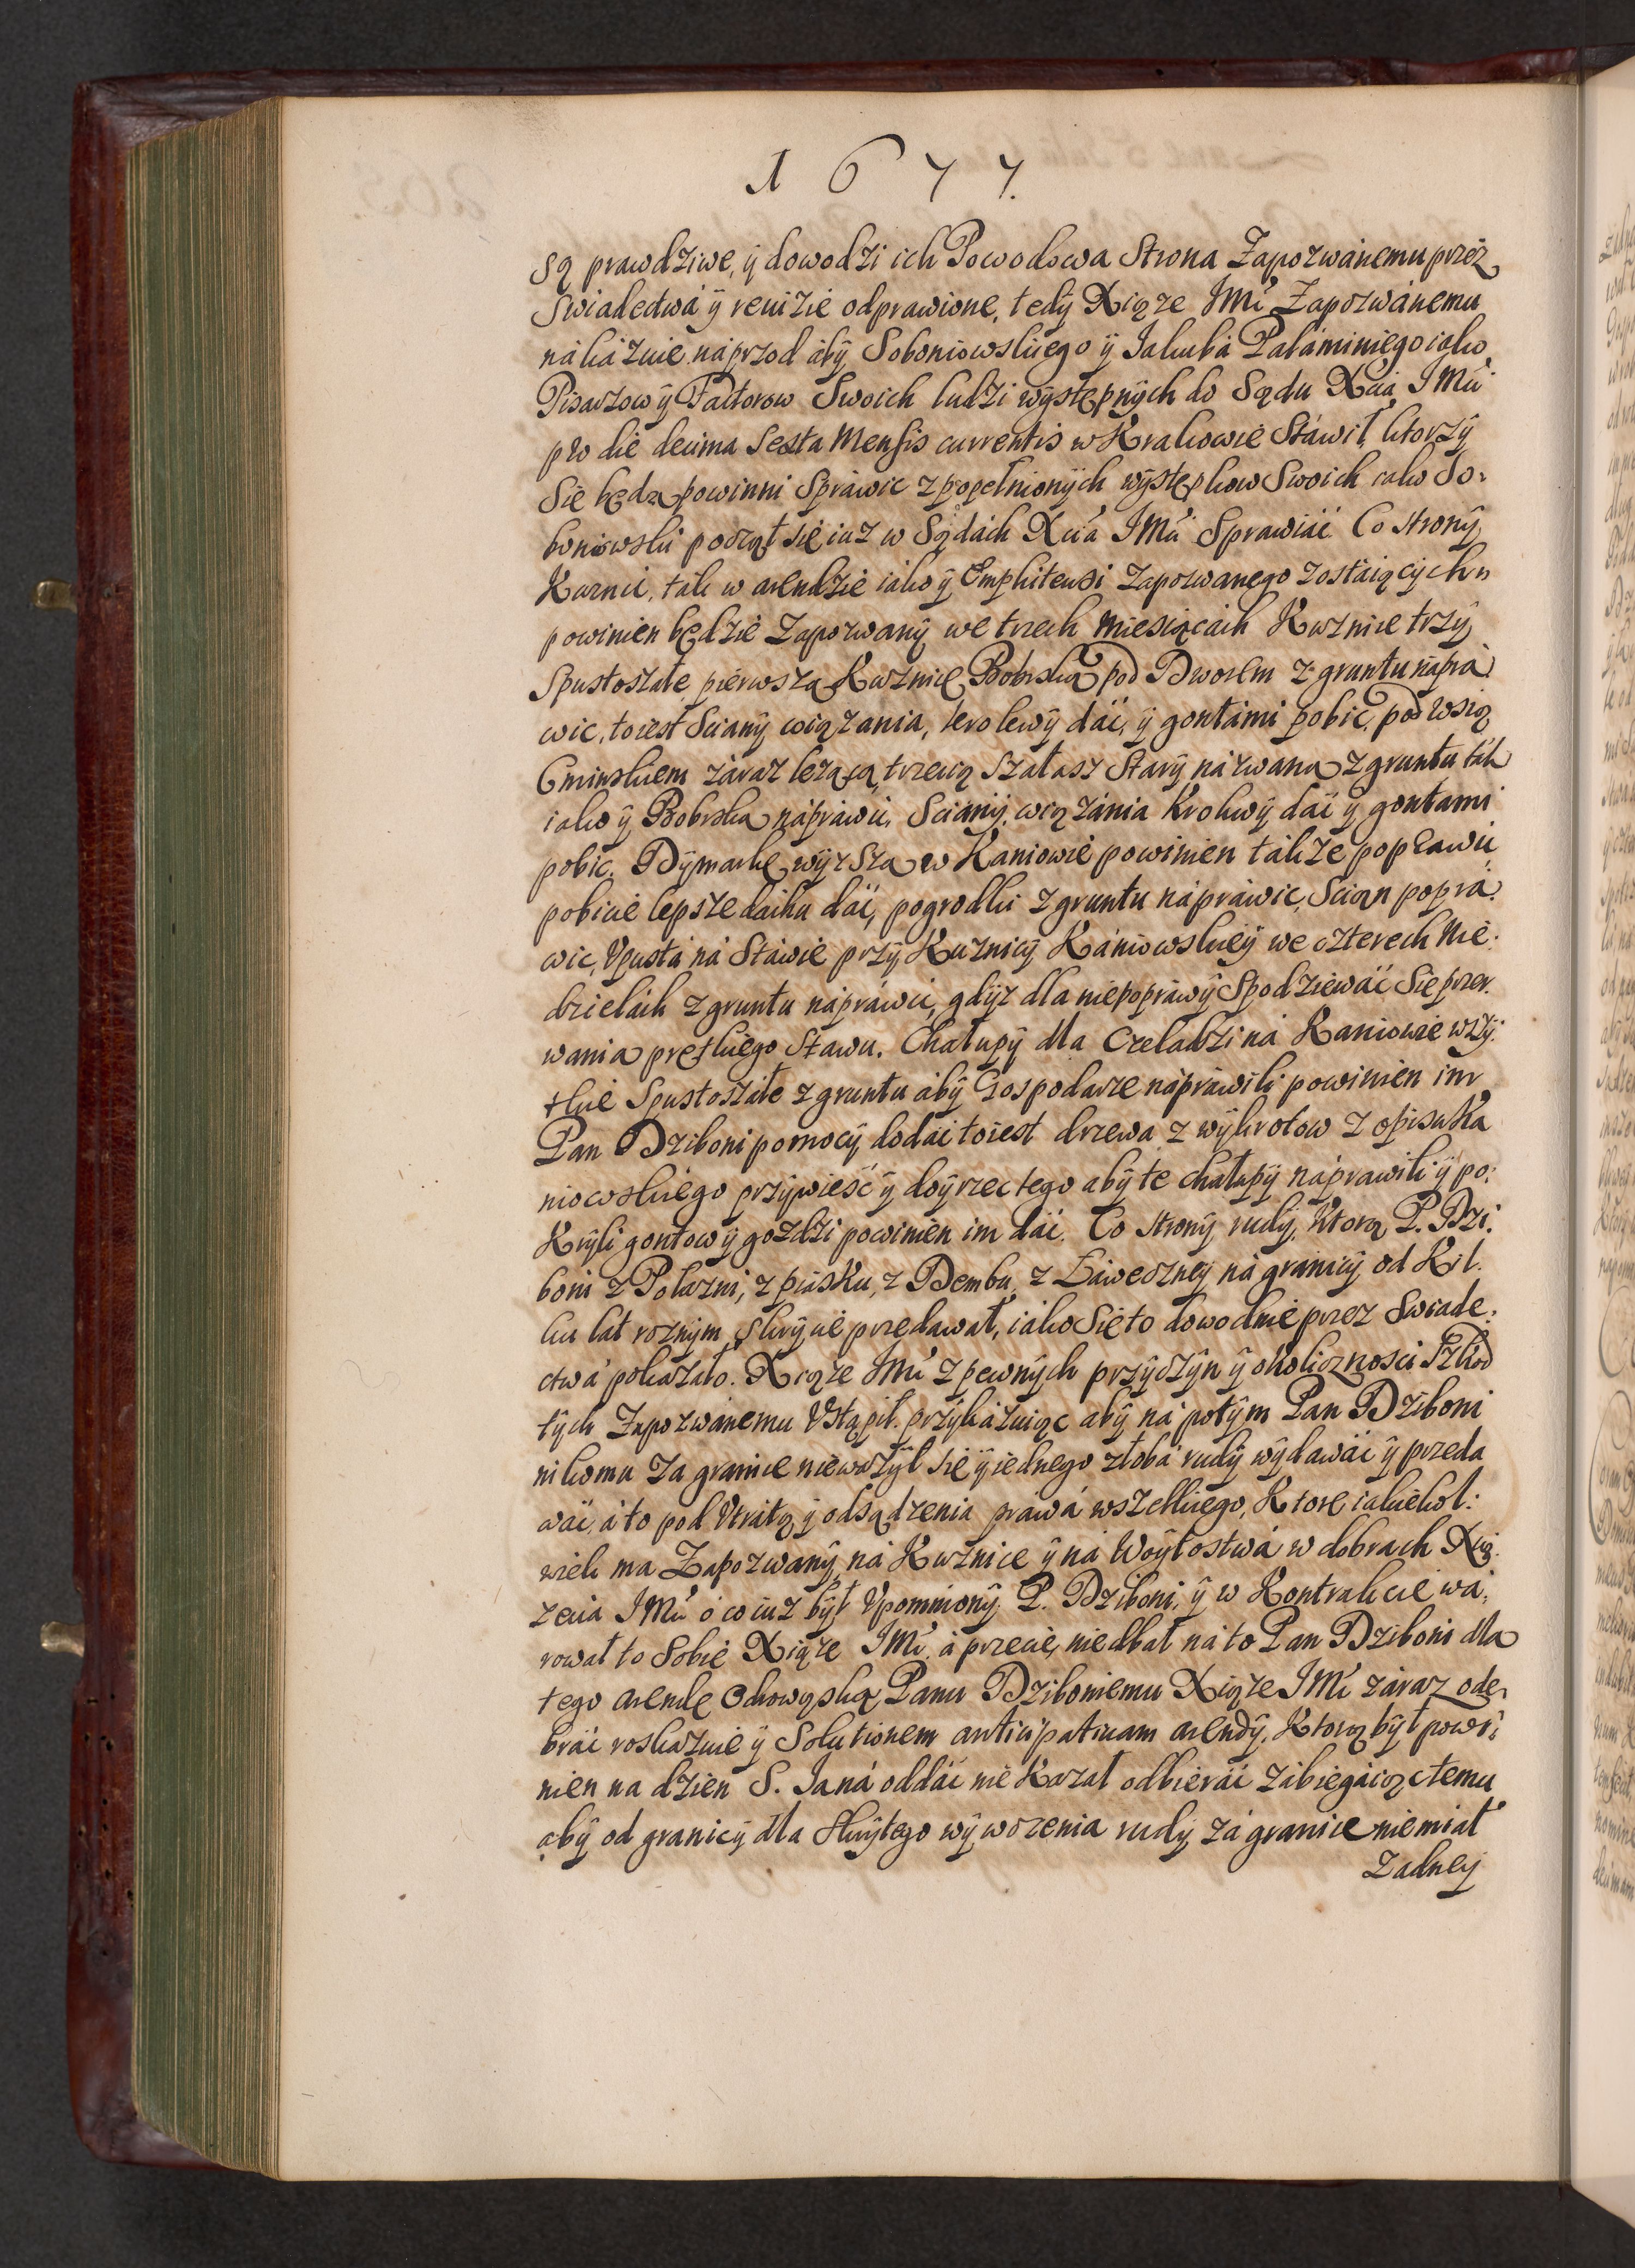 1677.
Są prawdziwe, ÿ dowodzi ich Powodowa Strona Zapozwánemu przez
Swiadectwá ÿ reuizie odprawione, tedÿ Xiąze JMć Zapozwánemu
nákázuie naprzod ábÿ Soboniowskiego ÿ Jakubá Páłáminiego iako
Pisarzow ÿ Factorow Swoich ludzi wÿstępnÿch do Sądu Xcia JMći
pro die decima Sexta Mensis currentis w Krakowie Stáwił, ktorzÿ
Się będą powinni Spráwic z popełnionÿch wÿstępkow Swoich iako So:
boniowski począł się iuz w Sądách Xcia JMći Sprawiáć. Co Stronÿ
Kuznic, tak w arendzie iako ÿ Emphiteusi Zapozwanego zostáiącÿch
powinien będzie Zapozwanÿ we trzech Miesiącách Kuznice trzÿ
Spustoszałe, pierwszą Kuznicę Bobrską pod Dworem z gruntu nápra
wic, toiest Scianÿ wiązania, krolewÿ dáć, ÿ gontámi pobic, pod Wsią
Cminskiem záraz leząca, trzecią Szałasz Starÿ názwaną z gruntu ták
iako ÿ Bobrska nápráwić, Scianÿ, wiązánia Krolwÿ dáć ÿ gontami
pobic. Dÿmarkę wÿzszą w Kaniowie powinien tákze popráwić
pobicie lepsze dáchu dáć, pogrodki z gruntu nápráwic, Scian poprá
wic, Vpustá ná Stáwie przÿ Kuznicÿ Kániowskieÿ we czterech Nie:
dzielách z gruntu nápráwić, gdÿz dla niepopráwÿ Spodziewáć Się przer
wania prętkiego Stawu. Chałupÿ dla Czeladzi ná Kaniowie wszÿ:
tkie Spustoszáłe z gruntu ábÿ Gospodarze nápráwili powinien im
Pan Dziboni pomocÿ dodáć toiest drzewa z wÿkrotow z opisu Ka
niowskiego przÿwieść ÿ doÿrzec tego abÿ te chałupÿ náprawili ÿ po:
Krÿli gontow ÿ gozdzi powinien im dáć. Co Stronÿ rudÿ, Ktorą P. Dzi:
boni z Polazni, z piásku, z Dembu, z Láweczneÿ ná granicÿ od Kil:
ku lat roznÿm Skrÿcie przedawał, iako Się to dowodnie przez Swiade:
ctwá pokazało. Xiąze JMć z pewnÿch przÿczÿn ÿ okoliczności Szkod
tÿch Zapozwánemu Vstąpił. przÿkázuiąc abÿ ná potÿm Pan Dziboni
nikomu za granice niewazÿł się ÿ iednego złobá rudÿ wÿdawáć ÿ przeda
wáć, á to pod Vtrátą ÿ odsądzenia práwá wszelkiego, Ktore iakiekol:
wiek ma Zapozwanÿ ná Kuznice ÿ ná Woÿtostwá w dobrach Xią:
zecia JMći o co iuz bÿł Vpomnionÿ P. Dziboni, ÿ w Kontrakcie wá:
rował to Sobie Xiąze JMć, á przecie niedbał ná to Pan Dziboni dla
tego arendę Odrowąską Panu Dziboniemu Xiąze JMć záraz ode:
bráć roskázuie ÿ Solutionem anticipatiuam arendÿ, Ktorą bÿł powi:
nien na dzien S. Janá oddáć nie Kazał odbieráć zábiegáiąc temu
abÿ od granicÿ dla Skrÿtego wÿwozenia rudÿ zá granice niemiał
Zadneÿ